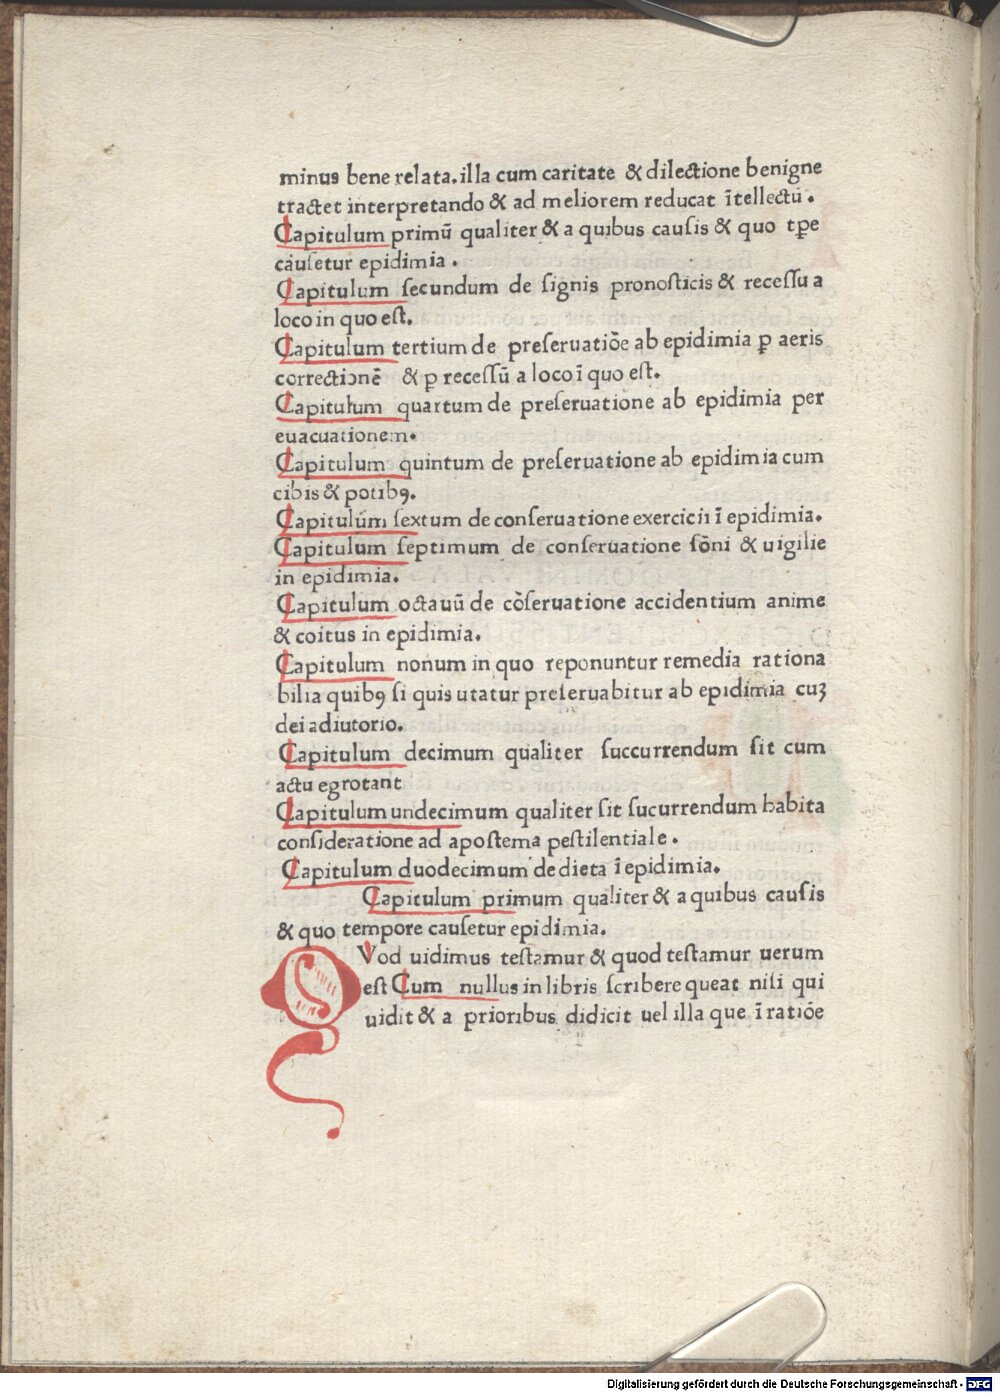 minus bene relata. illa cum caritate & dilectione benigne
tractet interpretando & ad meliorem reducat ītellectū.
Capitulum primū qualiter & a quibus cauſis & quo tꝑe
cauſetur epidimia.
Capitulum ſecundum de ſignis pronoſticis & receſſu a
loco in quo eſt.
Capitulum tertium de preſeruatiōe ab epidimia ꝑ aeris
correctionē & ꝑ receſſū a loco ī quo eſt.
Capitulum quartum de preſeruatione ab epidimia per
euacuationem.
Capitulum quintum de preſeruatione ab epidimia cum
cibis & potibꝯ.
Capitulum ſextum de conſeruatione exercicii ī epidimia.
Capitulum ſeptimum de conſeruatione ſōni & uigilie
in epidimia.
Capitulum octauū de cōſeruatione accidentium anime
& coitus in epidimia.
Capitulum nonum in quo reponuntur remedia rationa
bilia quibꝯ ſi quis utatur preſeruabitur ab epidimia cuꝫ
dei adiutorio.
Capitulum decimum qualiter ſuccurrendum ſit cum
actu egrotant
Capitulum undecimum qualiter ſit ſucurrendum habita
conſideratione ad apostema peſtilentiale.
Capitulum duodecimum de dieta ī epidimia.
Capitulum primum qualiter & a quibus cauſis
& quo tempore cauſetur epidimia.
QVod uidimus teſtamur & quod teſtamur uerum
eſt Cum nullus in libris ſcribere queat niſi qui
uidit & a prioribus didicit uel illa que ī ratiōe
Digitalisierung gefördert durch die Deutsche Forschungsgemeinschaft - DFG